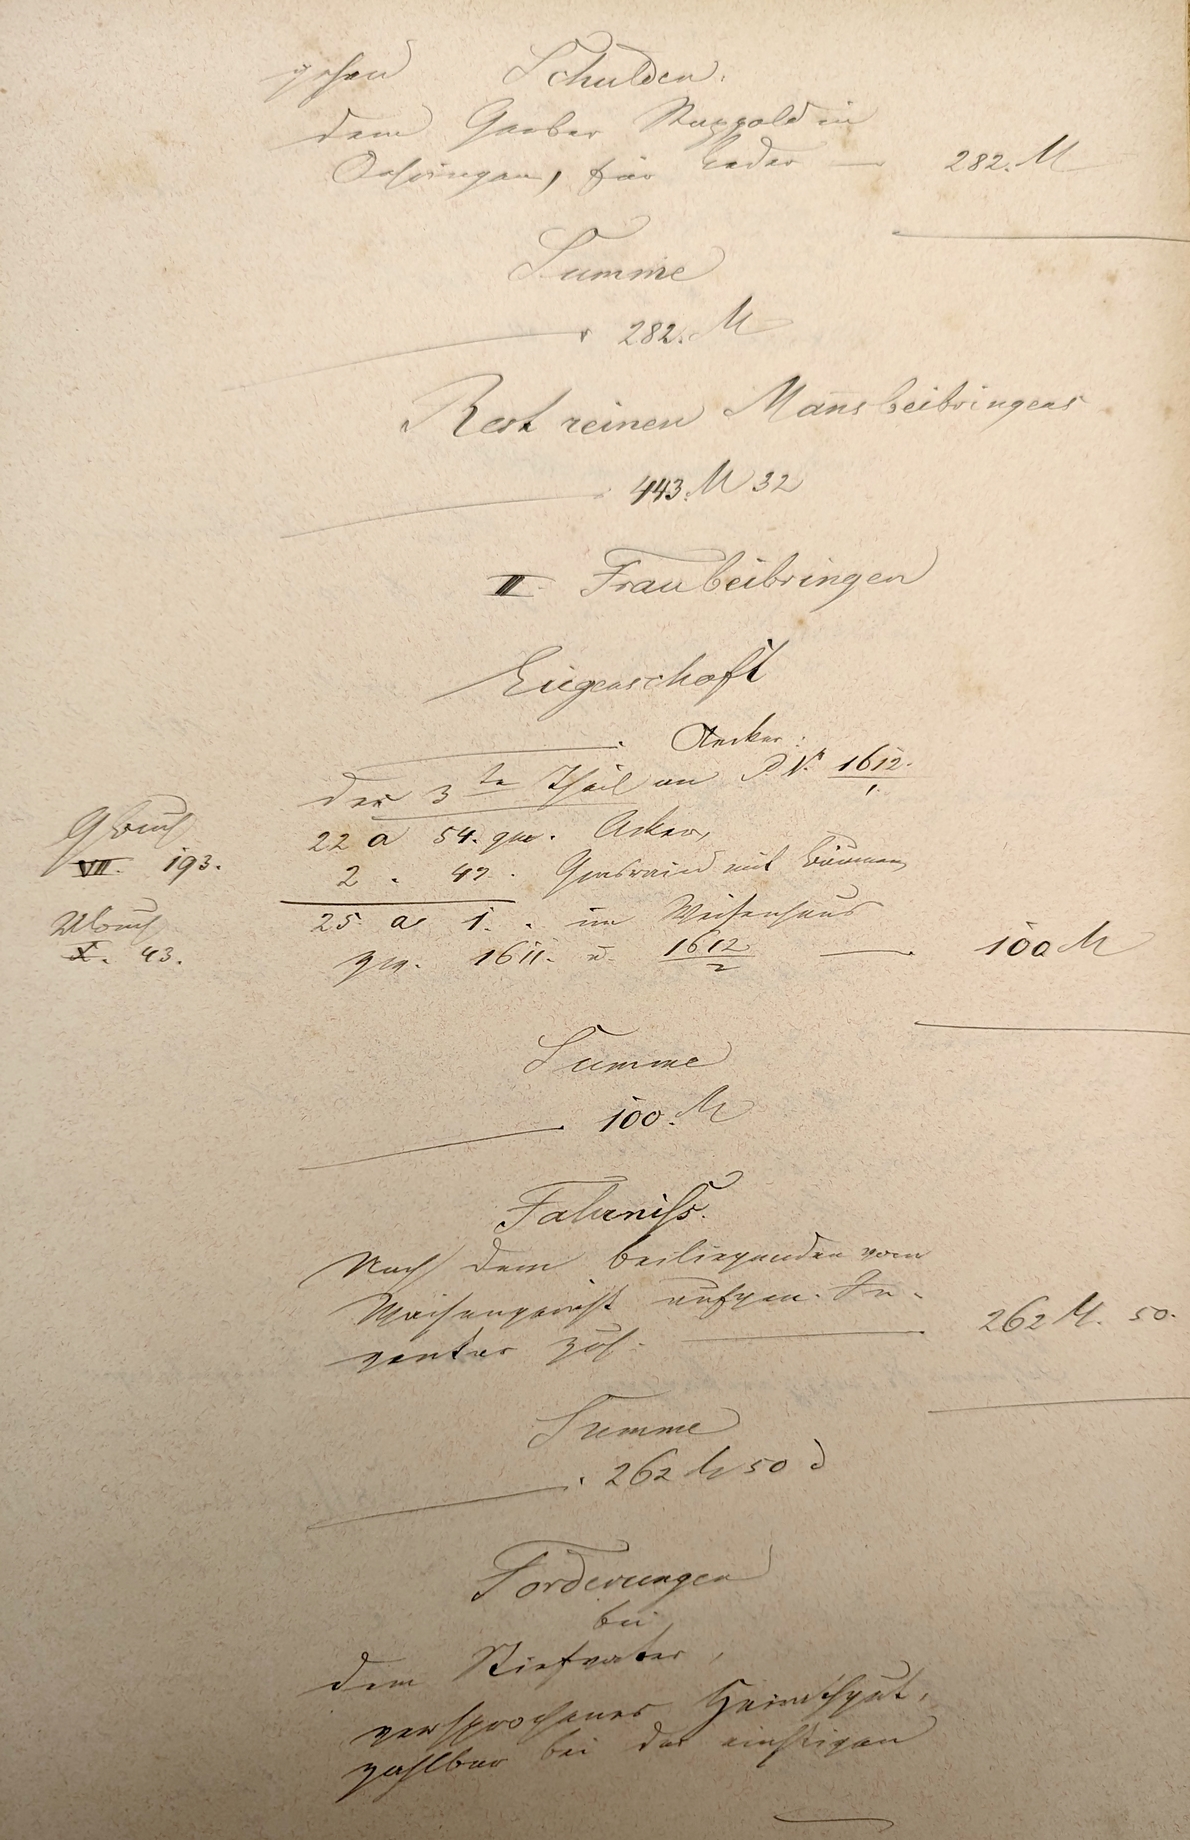 gehen Schulden.
dem Gerber Rappold in
Oehringen, für Leder — 282. M
Summe
282. M
Rest reinen Mannsbeibringens
443. M 32
II. Fraubeibringen
Liegenschaft
Aecker:
der 3te Theil an P. N. 1612/1.
22 a 54. qm. Acker,
2 . 47 . Grasrain mit Bäumen,
Gbuch
VII. 193.
25 a 1. . im Weisenhaus
Ubuch
X. 43.
zw. 1611. u. 1612/2 — 100 M
Summe
100. M
Fahrniss.
Nach dem beiliegenden vom
Waisengericht aufgen. In-
ventar zus. — 262 M. 50.
Summe
262 M 50 d
Forderungen
bei
dem Stiefvater,
versprochenes Heirathgut,
zahlbar bei der einstigen